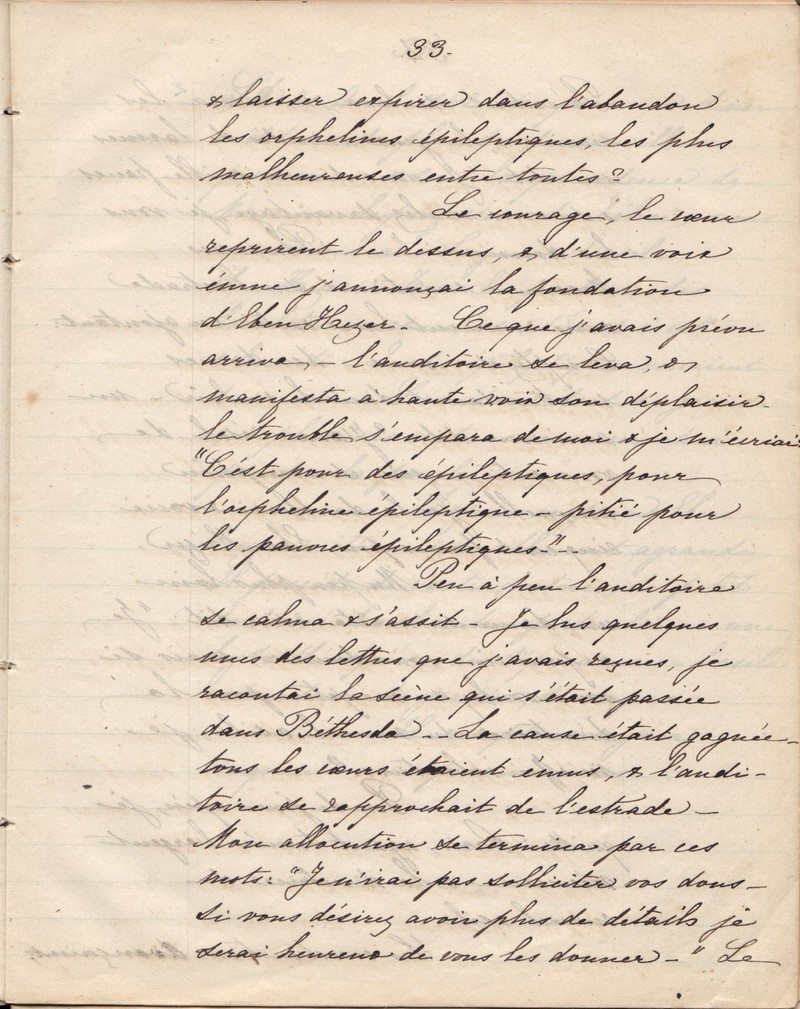 33.
& laisser expirer dans l'abandon
les orphelines épileptiques, les plus
malheureuses entre toutes?
Le courage, le cœur
reprirent le dessus, & d'une voix
émue j'annonçai la fondation
d'Eben Hezer. Ce que j'avais prévu
arriva, – l'auditoire se leva, &
manifesta à haute voix son déplaisir.
le trouble s'empara de moi & je m'écriai:
"C'est pour des épileptiques, pour
l'orpheline épileptique – pitié pour
les pauvres épileptiques."
Peu à peu l'auditoire
se calma & s'assit – Je lus quelques
unes des lettres que j'avais reçues, je
racontai la scène qui s'était passée
dans Béthesda – La cause était gagnée –
tous les cœurs étaient émus, & l'audi-
toire se rapprochait de l'estrade –
Mon allocution se termina par ces
mots: "Je n'irai pas solliciter vos dons –
si vous désirez avoir plus de détails je
serai heureux de vous les donner – " Le